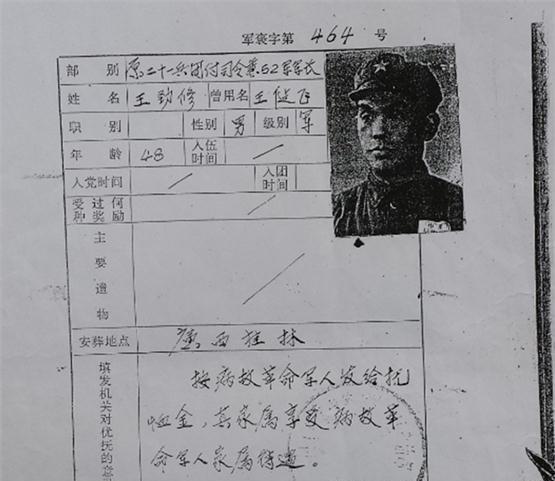 军衰字第 464 号
部别 原二十一兵团付司令兼52军军长
姓名 王劲修 曾用名 王健飞
职别 性别 男 级别 军
年龄 48 入伍时间 /
入党时间 / 入团时间
受过何种奖励 /
主要遗物 /
安葬地点 广西桂林
填发机关对优抚的意
按病故革命军人发给抚
恤金，其家属享受病故革
命军人家属待遇。